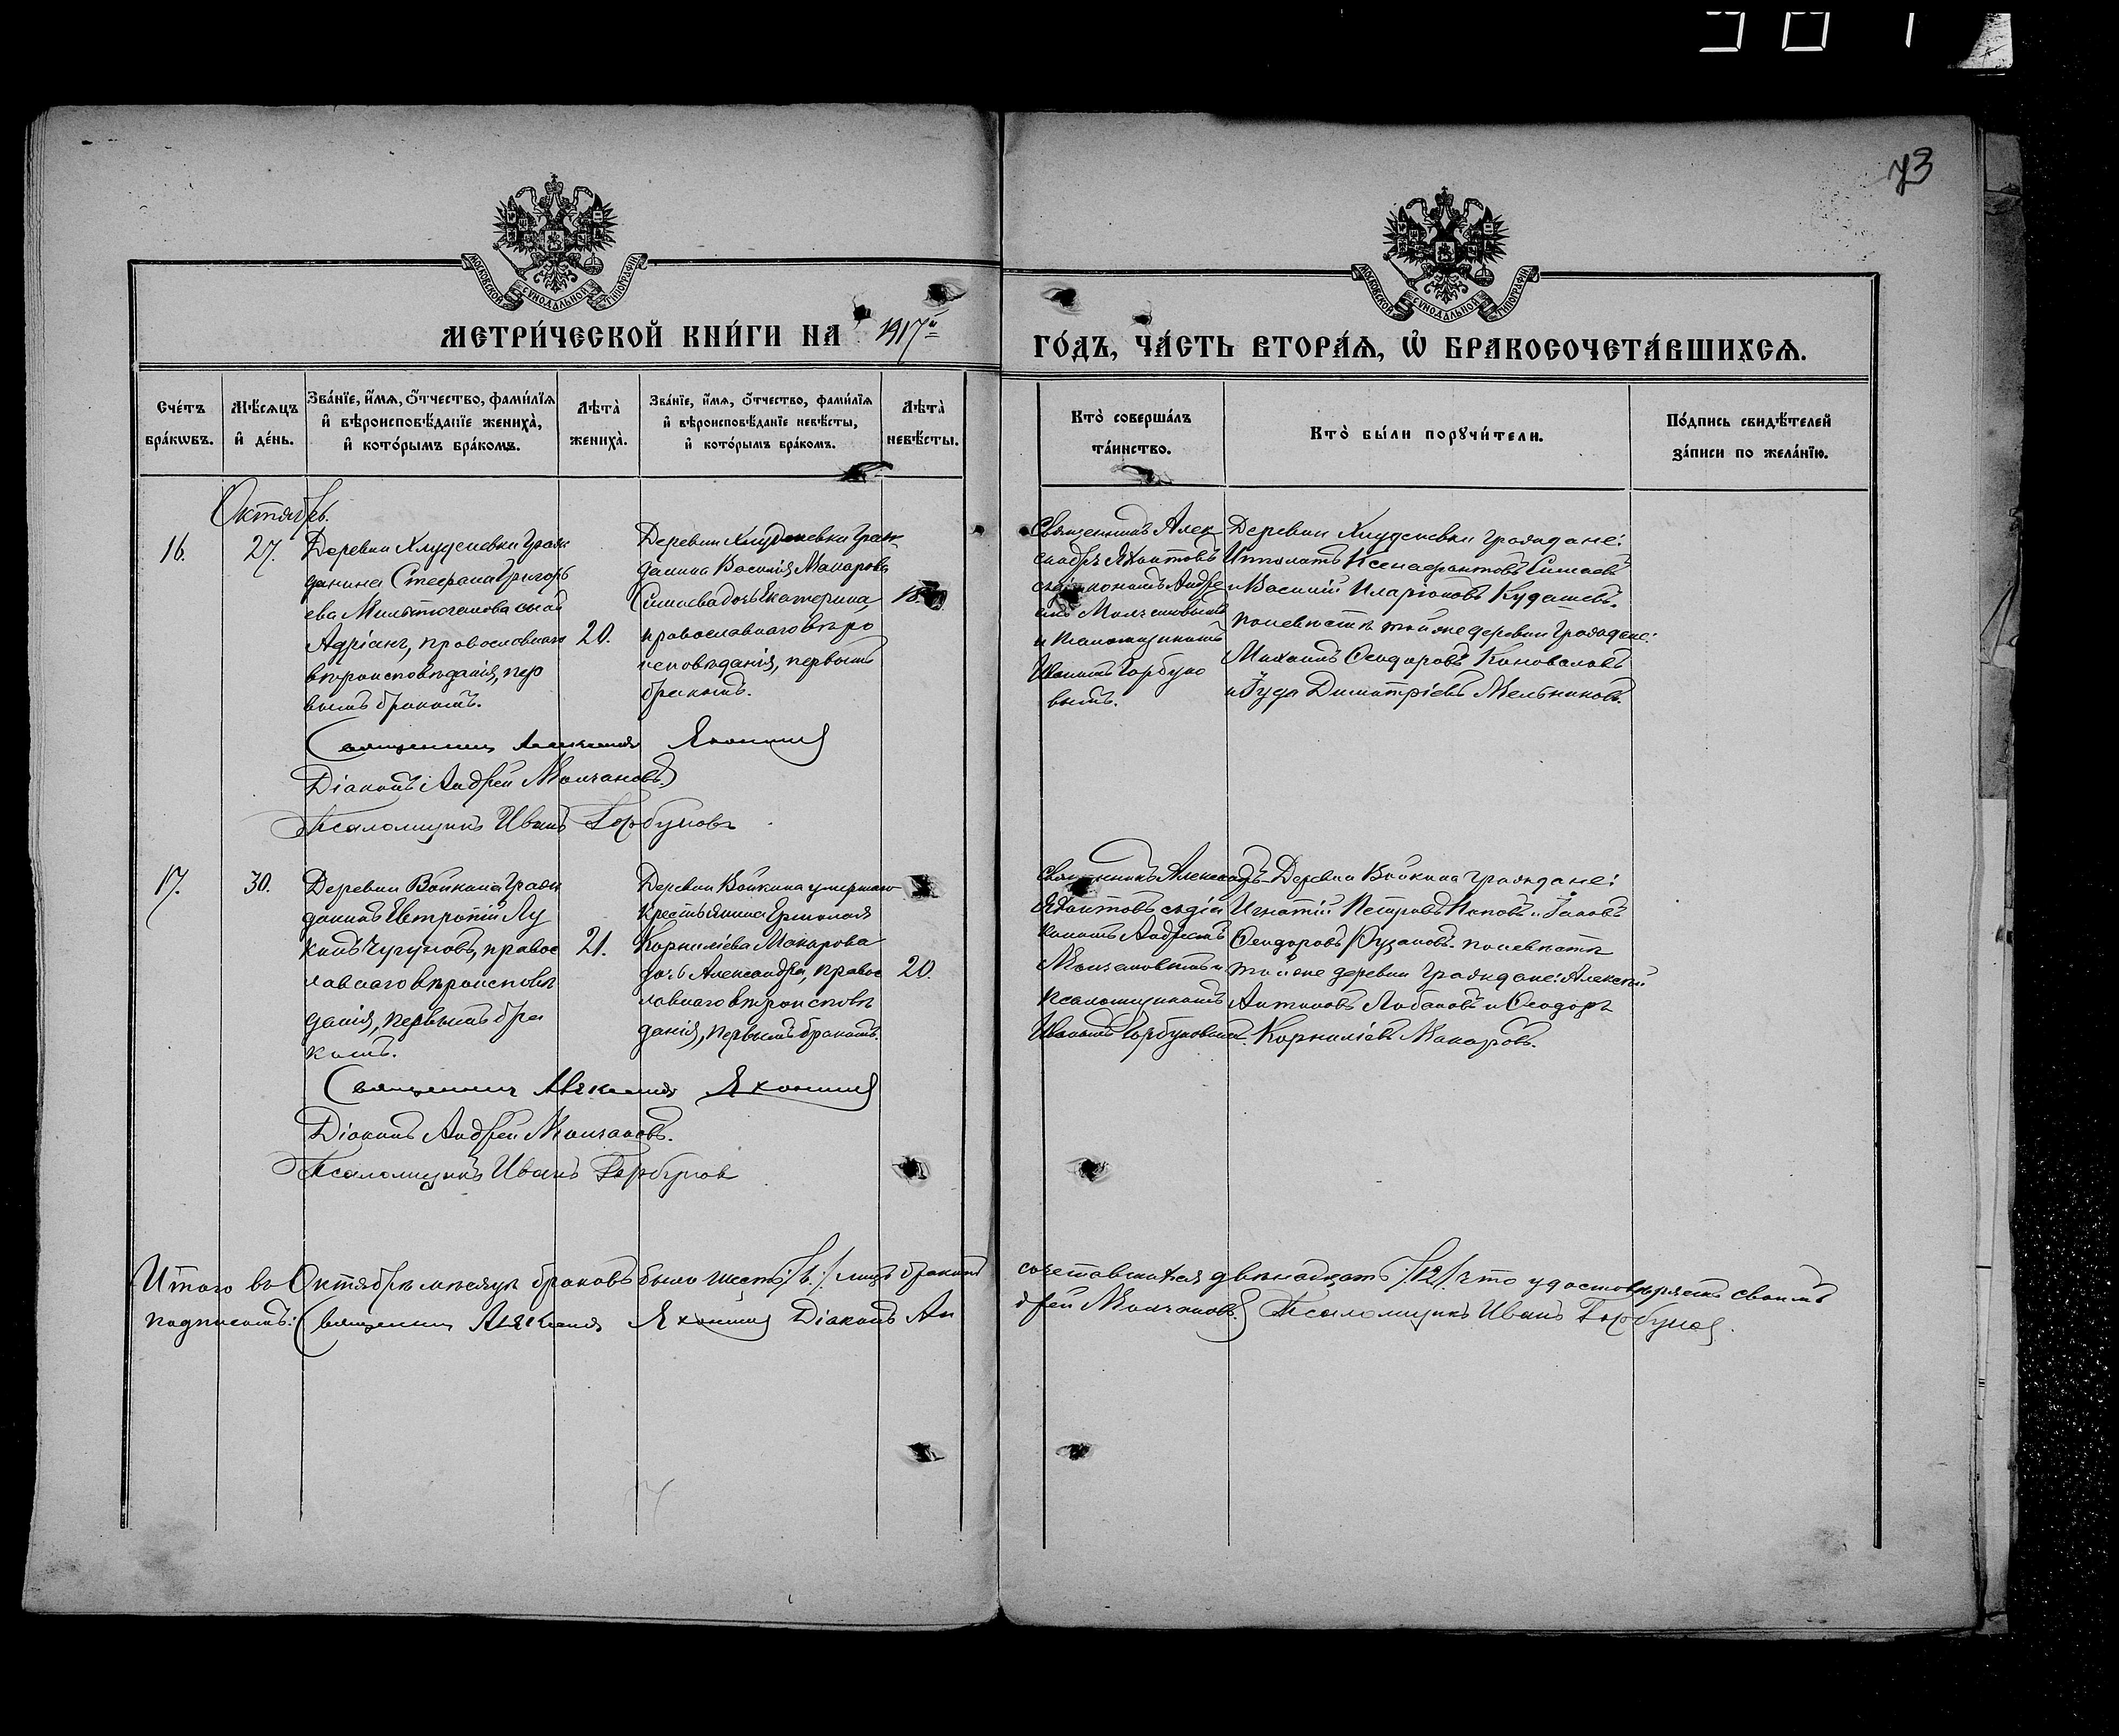 73
МОСКОВСКОЙ СУНОДАЛЬНОЙ ТИПОГРАФІИ
МОСКОВСКОЙ СУНОДАЛЬНОЙ ТИПОГРАФІИ
МЕТРИ́ЧЕСКОЙ КНИ́ГИ НА 1917й
ГО́ДЪ, ЧА́СТЬ ВТОРА́Ѧ, Ѡ҆ БРАКОСОЧЕТА́ВШИХСѦ.
Сче́тъ бра́кѡвъ.
Мѣ́сѧцъ и҆ де́нь.
Зва́нїе, и҆́мѧ, ѻ҆́тчество, фами́лїѧ
и҆ вѣроисповѣ́данїе жениха̀,
и҆ кото́рымъ бра́комъ.
Лѣта̀ жениха̀.
Зва́нїе, и҆́мѧ, ѻ҆́тчество, фами́лїѧ
и҆ вѣроисповѣ́данїе невѣ́сты,
и҆ кото́рымъ бра́комъ.
Лѣта̀ невѣ́сты.
Кто̀ соверша́лъ
та́инство.
Кто̀ бы́ли порꙋчи́тели.
По́дпись свидѣ́телей
за́писи по жела́нїю.
Октябрь.
16.
27.
Деревни Хлуденевки граж
данина Стефана Григорь
ева сынъ
Адріанъ, православнаго
вѣроисповѣданія, пер
вымъ бракомъ.
20.
Деревни Хлуденевки граж
данина Василія Макарова
дочь Екатерина,
православнаго вѣро
исповѣданія, первымъ
бракомъ.
Священникъ Алек
сандръ Яхонтовъ
съ діакономъ Андре
емъ Молчановымъ
и псаломщикомъ
Иваномъ Горбуно
вымъ.
Деревни Хлуденевки граждане:
Ипполитъ Ксенофонтовъ
и Василій Иларіоновъ Кудашевъ.
по невѣстѣ той же деревни граждане:
Михаилъ Ѳеодоровъ Коноваловъ
и Іуда Димитріевъ Мельниковъ.
Священникъ Александръ Яхонтовъ
Діаконъ Андрей Молчановъ
Псаломщикъ Иванъ Горбуновъ
17.
30.
Деревни Войкина граж
данинъ Евтропій Лу
кинъ Чугуновъ, правос
лавнаго вѣроисповѣ
данія, первымъ бра
комъ.
21.
Деревни Войкина умершаго
крестьянина Ермолая
Корниліева Макарова
дочь Александра, правос
лавнаго вѣроисповѣ
данія, первымъ бракомъ.
20.
Священникъ Александръ
Яхонтовъ съ діа
кономъ Андреемъ
Молчановымъ и
псаломщикомъ
Иваномъ Горбуновымъ.
Деревни Войкина граждане:
Игнатій Петровъ Поповъ и Іаковъ
Ѳеодоровъ. по невѣстѣ
той же деревни граждане: Алексѣй
Антиповъ Лобановъ и Ѳеодоръ
Корниліевъ Макаровъ.
Священникъ Александръ Яхонтовъ
Діаконъ Андрей Молчановъ.
Псаломщикъ Иванъ Горбунов
Итого въ Октябрѣ мѣсяцѣ браковъ было шесть /6./ лицъ бракомъ сочетавшихся двѣнадцать /12/ что удостовѣряемъ своимъ
подписомъ: Священникъ Александръ Яхонтовъ Діаконъ Андрей Молчановъ. Псаломщикъ Иванъ Горбунов.